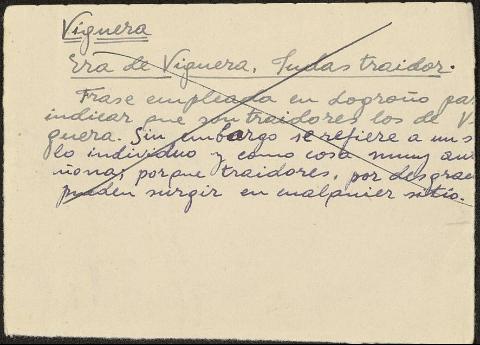 Viguera
Era de Viguera, Judas traidor.
Frase empleada en Logroño par
indicar que son traidores los de Vi
guera. Sin embargo se refiere a un s
lo individuo y como cosa muy
ñona; porque traidores, por desgrac
pueden surgir en cualquier sitio.